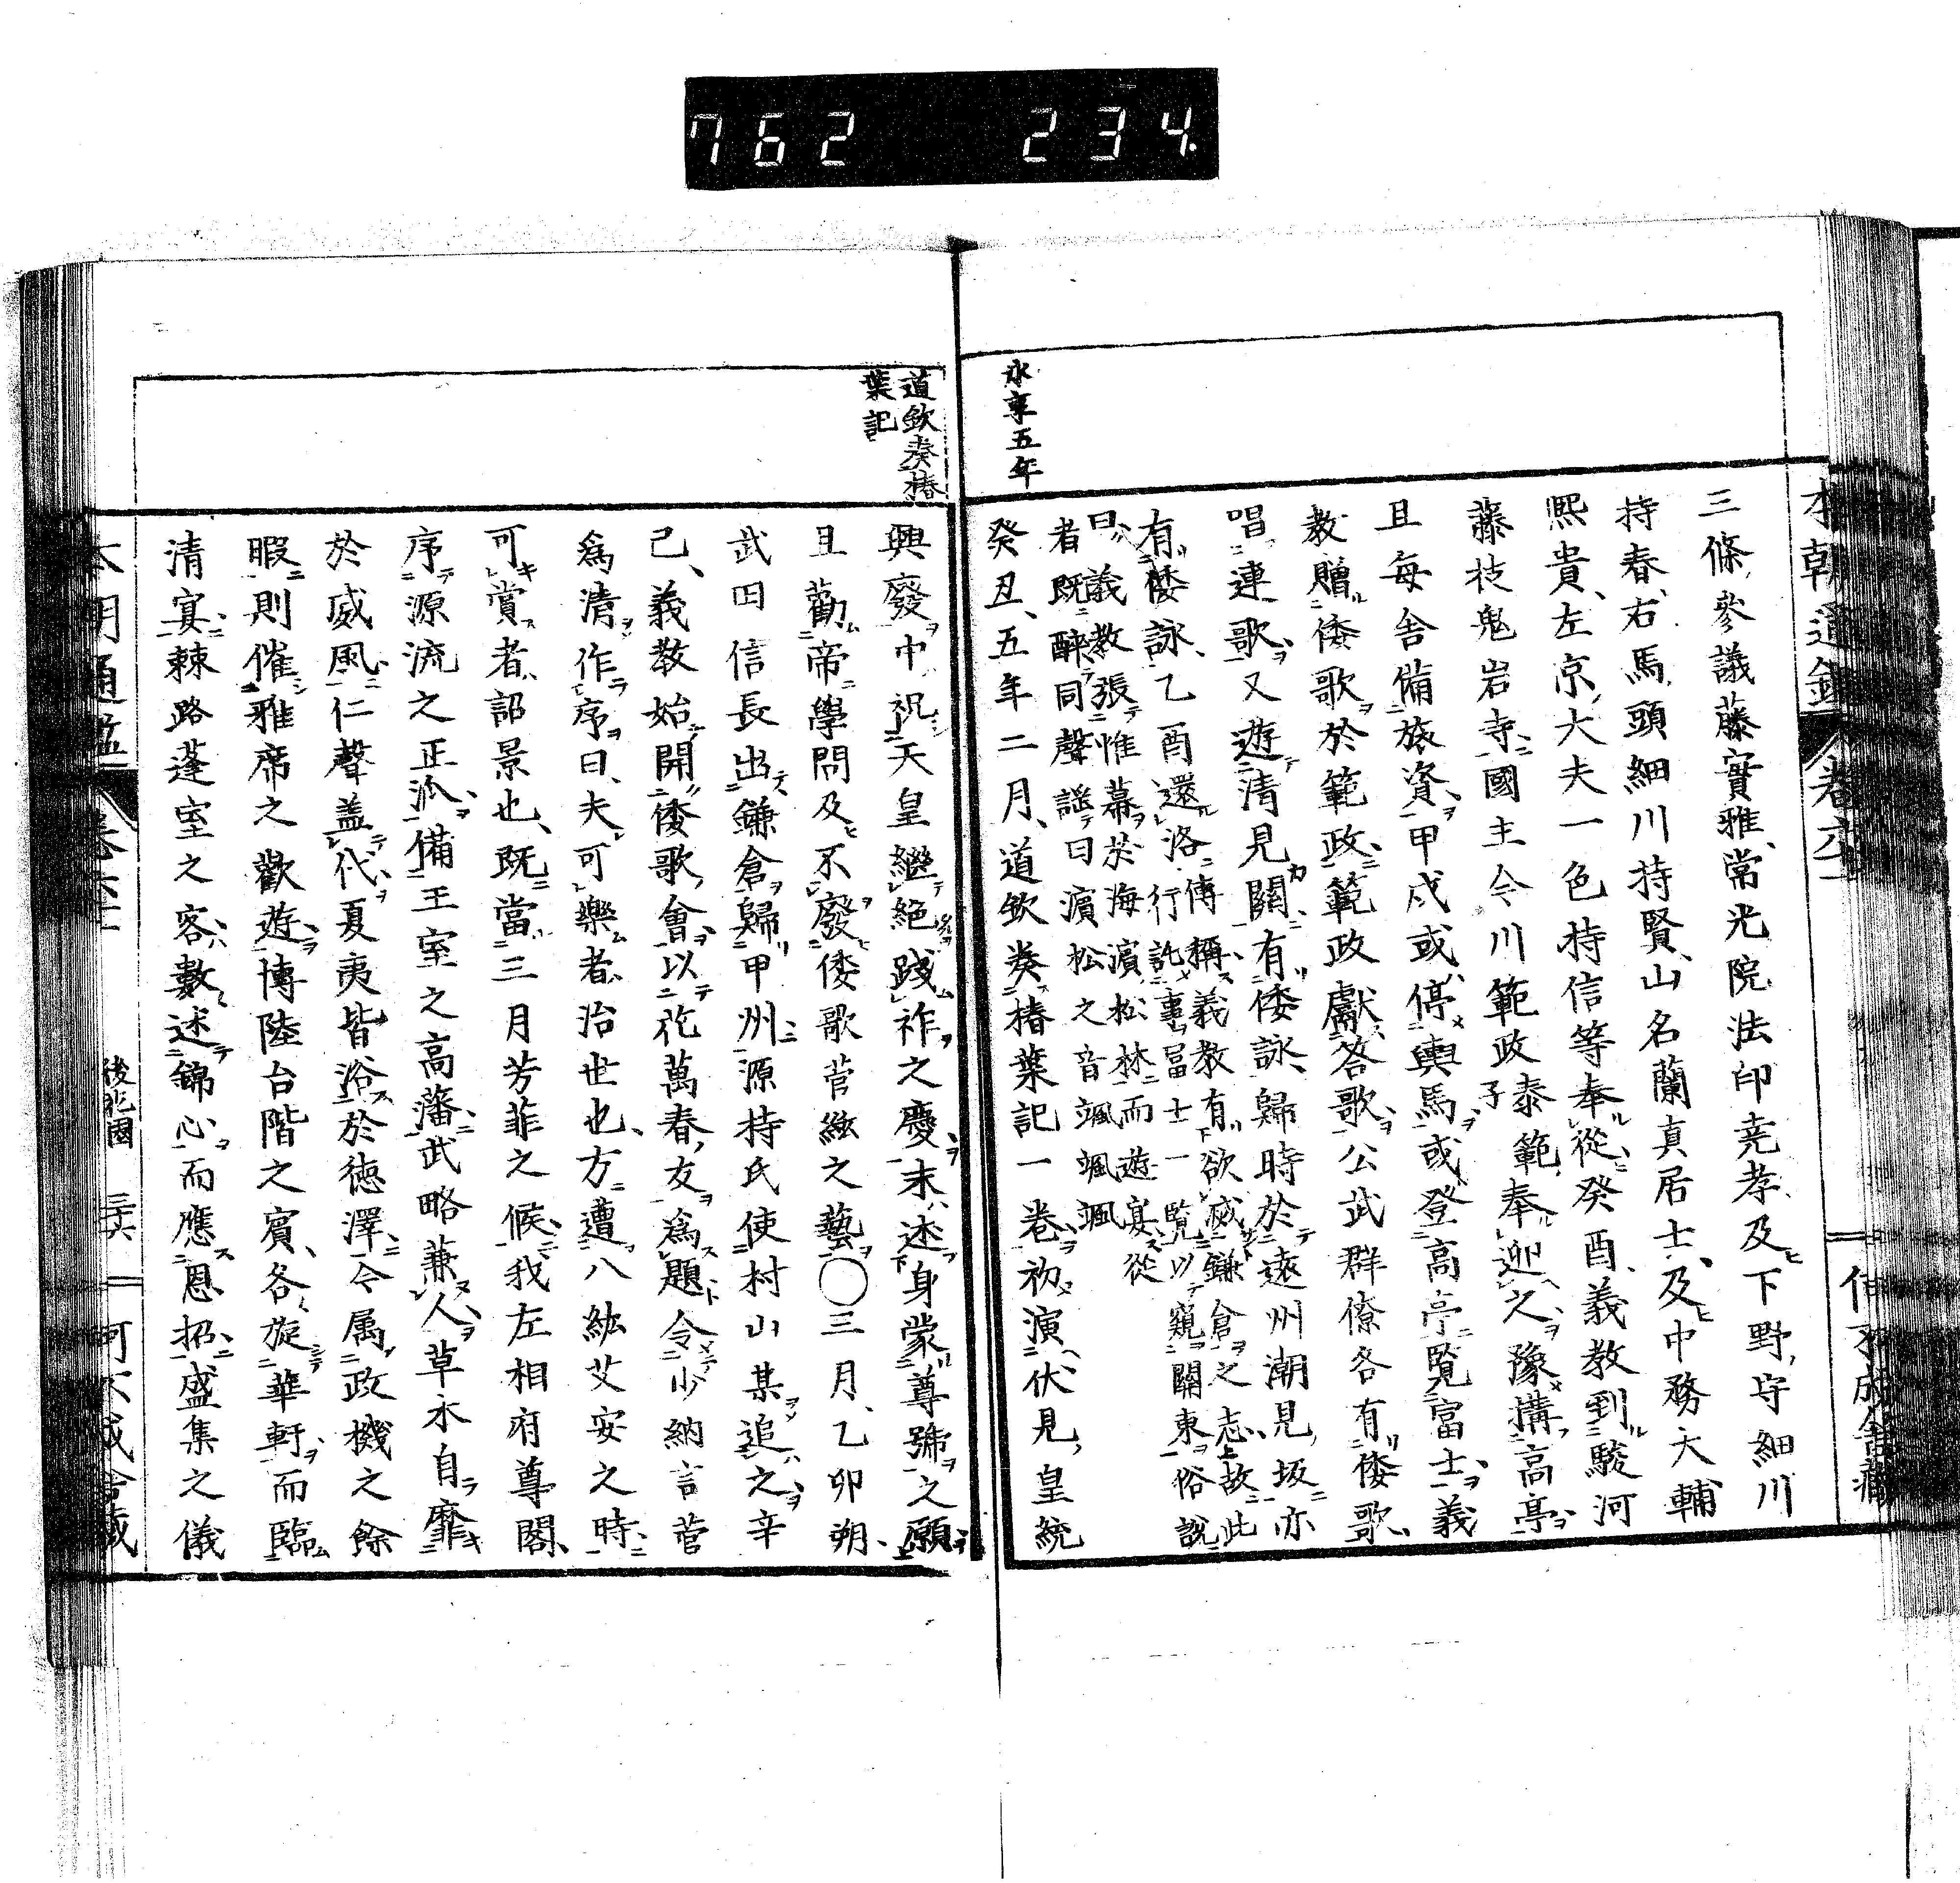 762 234.
永享五年
三條參議藤實雅常光院法印堯孝及下野守細川
持春右馬頭細川持賢山名蘭真居士及中務大輔
熙貴左京大夫一色持信等奉從癸酉義教到駿河
藤枝鬼岩寺國主今川範政子泰範奉迎之豫搆高亭
且每舍備旅資甲戌或停輿馬或登高亭覽富士義
教贈倭歌於範政範政獻答歌公武群僚各有倭歌
唱連歌又遊清見關有倭詠歸時於遠州潮見坂亦
有倭詠乙酉還洛傳稱義教有欲威鎌倉之志故此
行託事富士一覽以窺關東俗說
曰義教張惟幕於海濵松林而遊宴從
者既醉同聲謡曰濵松之音颯颯颯
癸丑五年二月道欽奏椿葉記一卷初演伏見皇統
道欽奏椿
葉記
興廢中祝天皇繼絕踐祚之慶末述身蒙尊號之願
且勸帝學問及不廢倭歌菅絃之藝〇三月乙卯朔
武田信長出鎌倉歸甲州源持氏使村山某追之辛
己義教始開倭歌會以花萬春友爲題令少納言菅
爲清作序序曰夫可樂者治世也方遭八紘艾安之時
可賞者韶景也既當三月芳菲之候我左相府尊閤
序源流之正派備王室之高藩武略兼人草木自靡
於威風仁聲盖代夏夷皆浴於德澤令属政機之餘
暇則催雅席之歡遊博陸台階之賓各旋華軒而臨
清宴棘路蓬室之客數述錦心而應恩招盛集之儀
本朝通鑑
後花園
三六